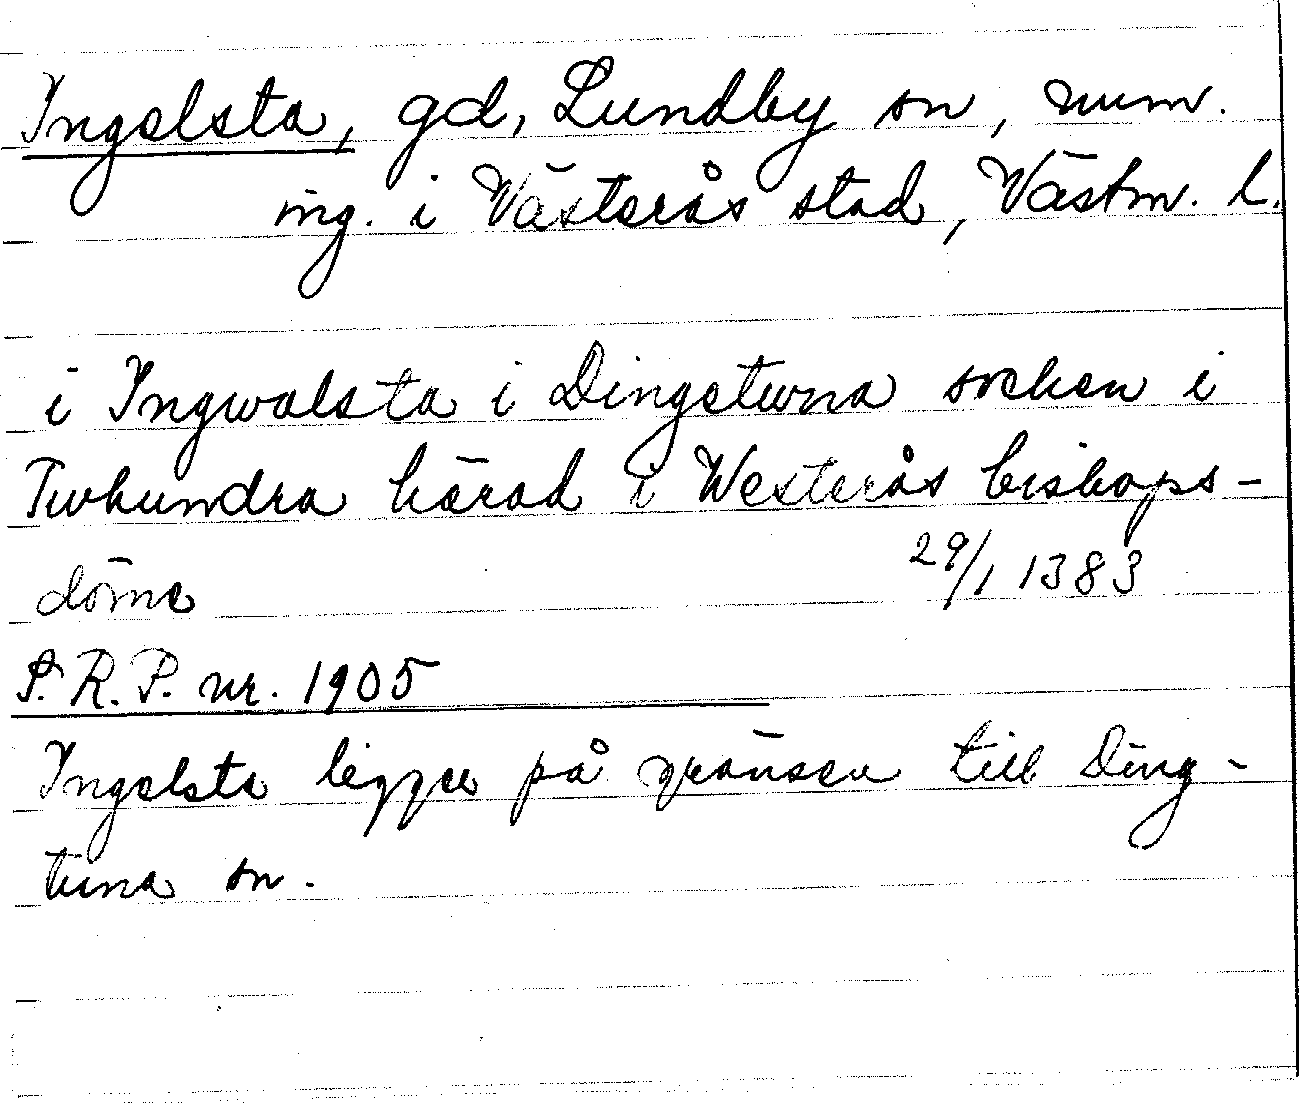 Ingelsta, gd, Lundby sn, num.
ing. i Västerås stad, Västm. l.
i Ingwalsta i Dingetuna socken i
Twhundra härad i Westerås biskops-
döme 29/1 1383
S.R.P. nr. 1905
Ingelsta ligger på gränsen till Ding-
tuna sn.